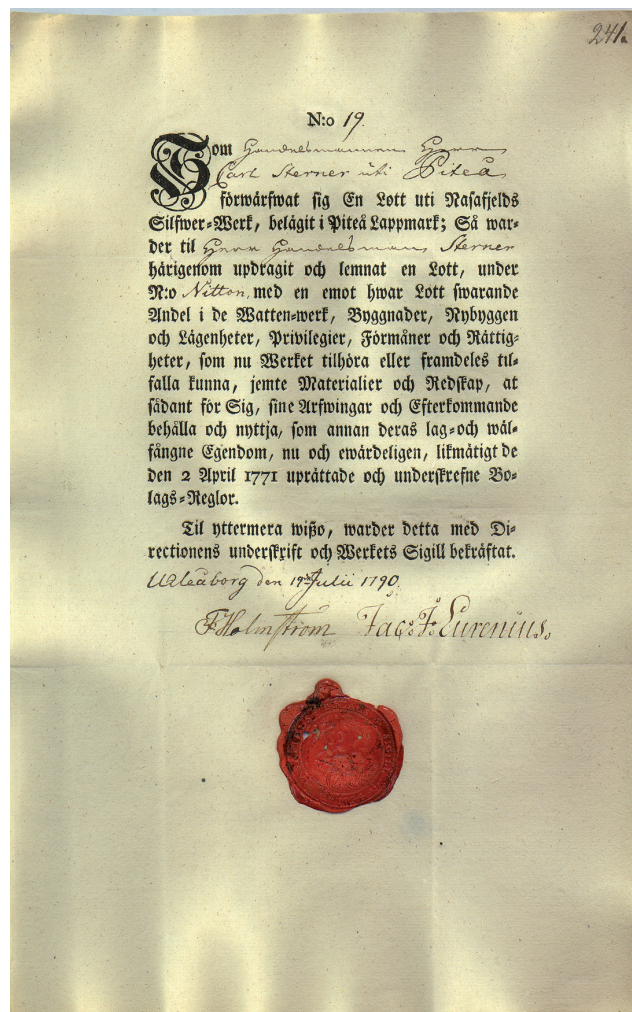 241.
N:o 19.
Som Handelsmannen Herr
Carl Sterner uti Piteå
förwärfwat sig En Lott uti Nasafjelds
Silfwer-Werk, belägit i Piteå Lappmark; Så war-
der til Herr Handelsman Sterner
härigenom updragit och lemnat en Lott, under
N:o Nitton, med en emot hwar Lott swarande
Andel i de Watten-werk, Byggnader, Nybyggen
och Lägenheter, Privilegier, Förmåner och Rättig-
heter, som nu Werket tilhöra eller framdeles til-
falla kunna, jemte Materialier och Redskap, at
sådant för Sig, sine Arfwingar och Efterkommande
behålla och nyttja, som annan deras lag- och wäl-
fångne Egendom, nu och ewärdeligen, likmätigt de
den 2 April 1771 uprättade och underskrefne Bo-
lags-Reglor.
Til yttermera wißo, warder detta med Di-
rectionens underskrift och Werkets Sigill bekräftat.
Uleåborg den 19 Julii 1790.
F Holmström Jac: J: Eurenius.